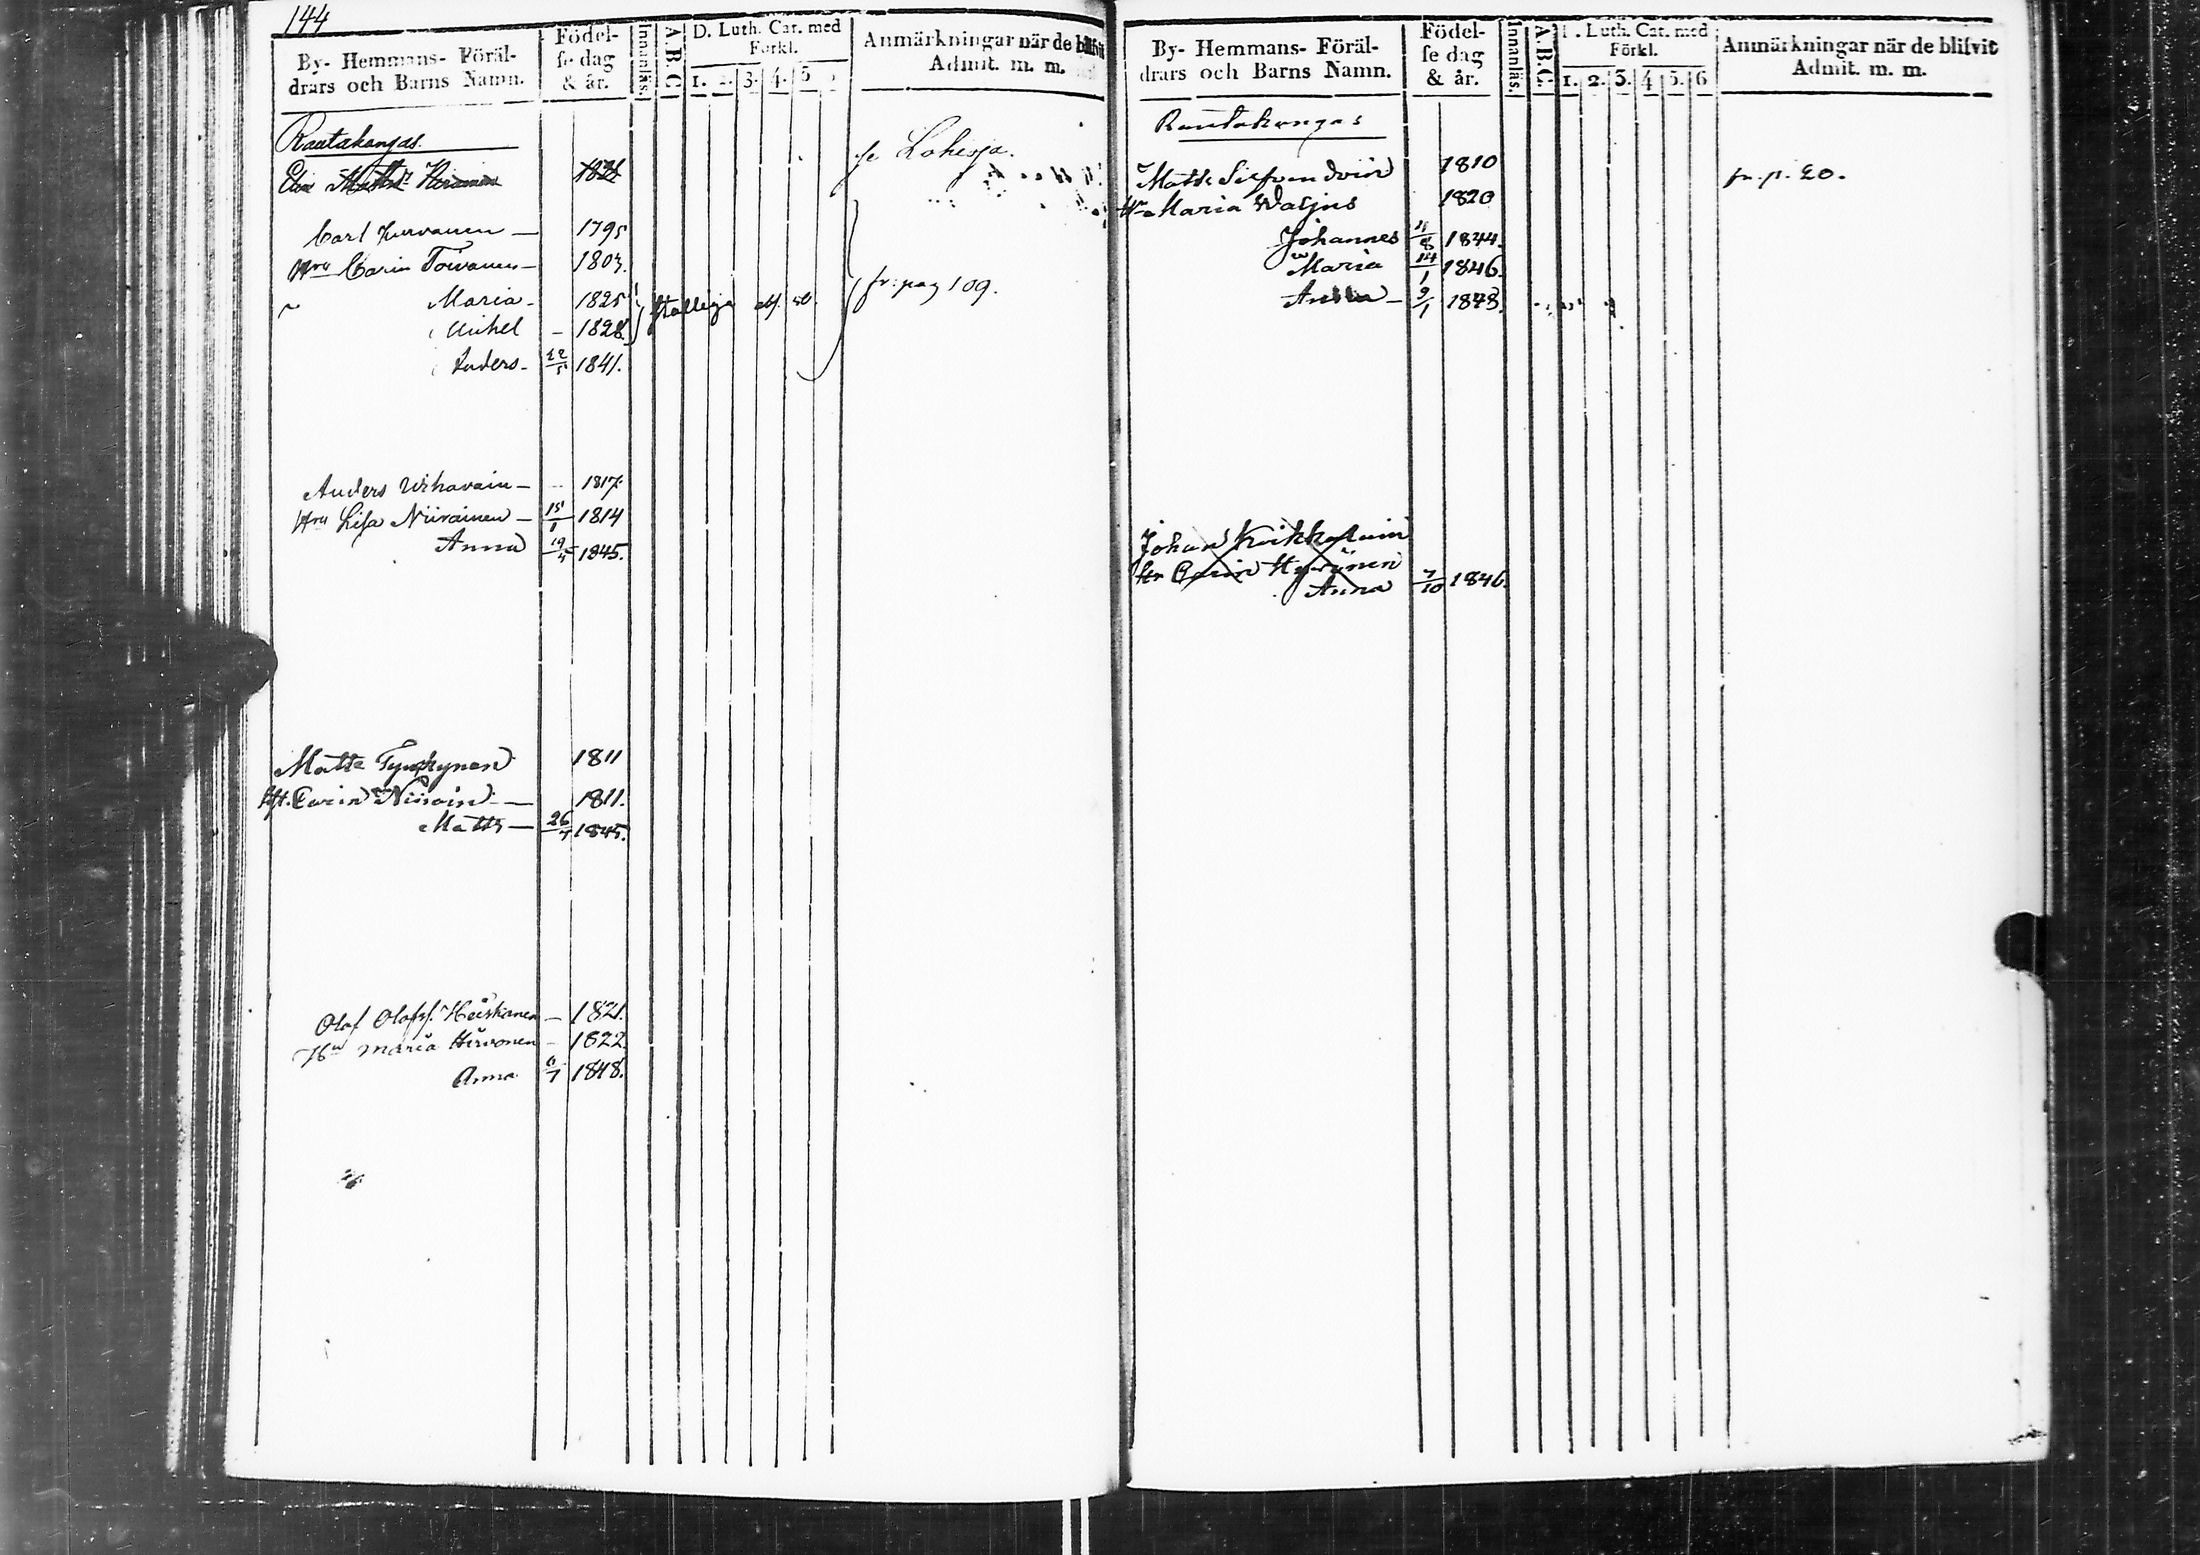 144
By- Hemmans- Föräl-
drars och Barns Namn.
Födel-
se dag
& år.
Innanläs.
A.B.C.
D. Luth. Cat. med
Förkl.
1. 2. 3. 4. 5
Anmärkningar när de blifvit
Admit. m. m.
Rautakangas.
Elin 1821
Carl 1795
Hru Carin Toivanen — 1803.
Maria - 1825
Michel - 1828.
Anders - 22/5 1841.
fr. pag 109.
Anders Wihavain — 1817.
Hru Lisa Niirainen — 15/1 1814
Anna 19/4 1845.
Matts Tynkynen 1811
Carin Niirain — 1811.
Matts — 26/7 1845.
Olof Olofss. Heiskanen — 1821.
Hu Maria Hirvonen — 1822.
Anna 6/7 1848.
By- Hemmans- Föräl-
drars och Barns Namn.
Födel-
se dag
& år.
Innanläs.
A.B.C.
D. Luth. Cat. med
Förkl.
1. 2. 3. 4 5. 6
Anmärkningar när de blifvit
Admit. m. m.
Rautakangas
Matts 1810 fr. p. 20.
Maria Waljus 1820
Johannes 1844.
Maria 14/1 1846.
9/1 1848.
Johan
Carin
Anna 7/10 1846.